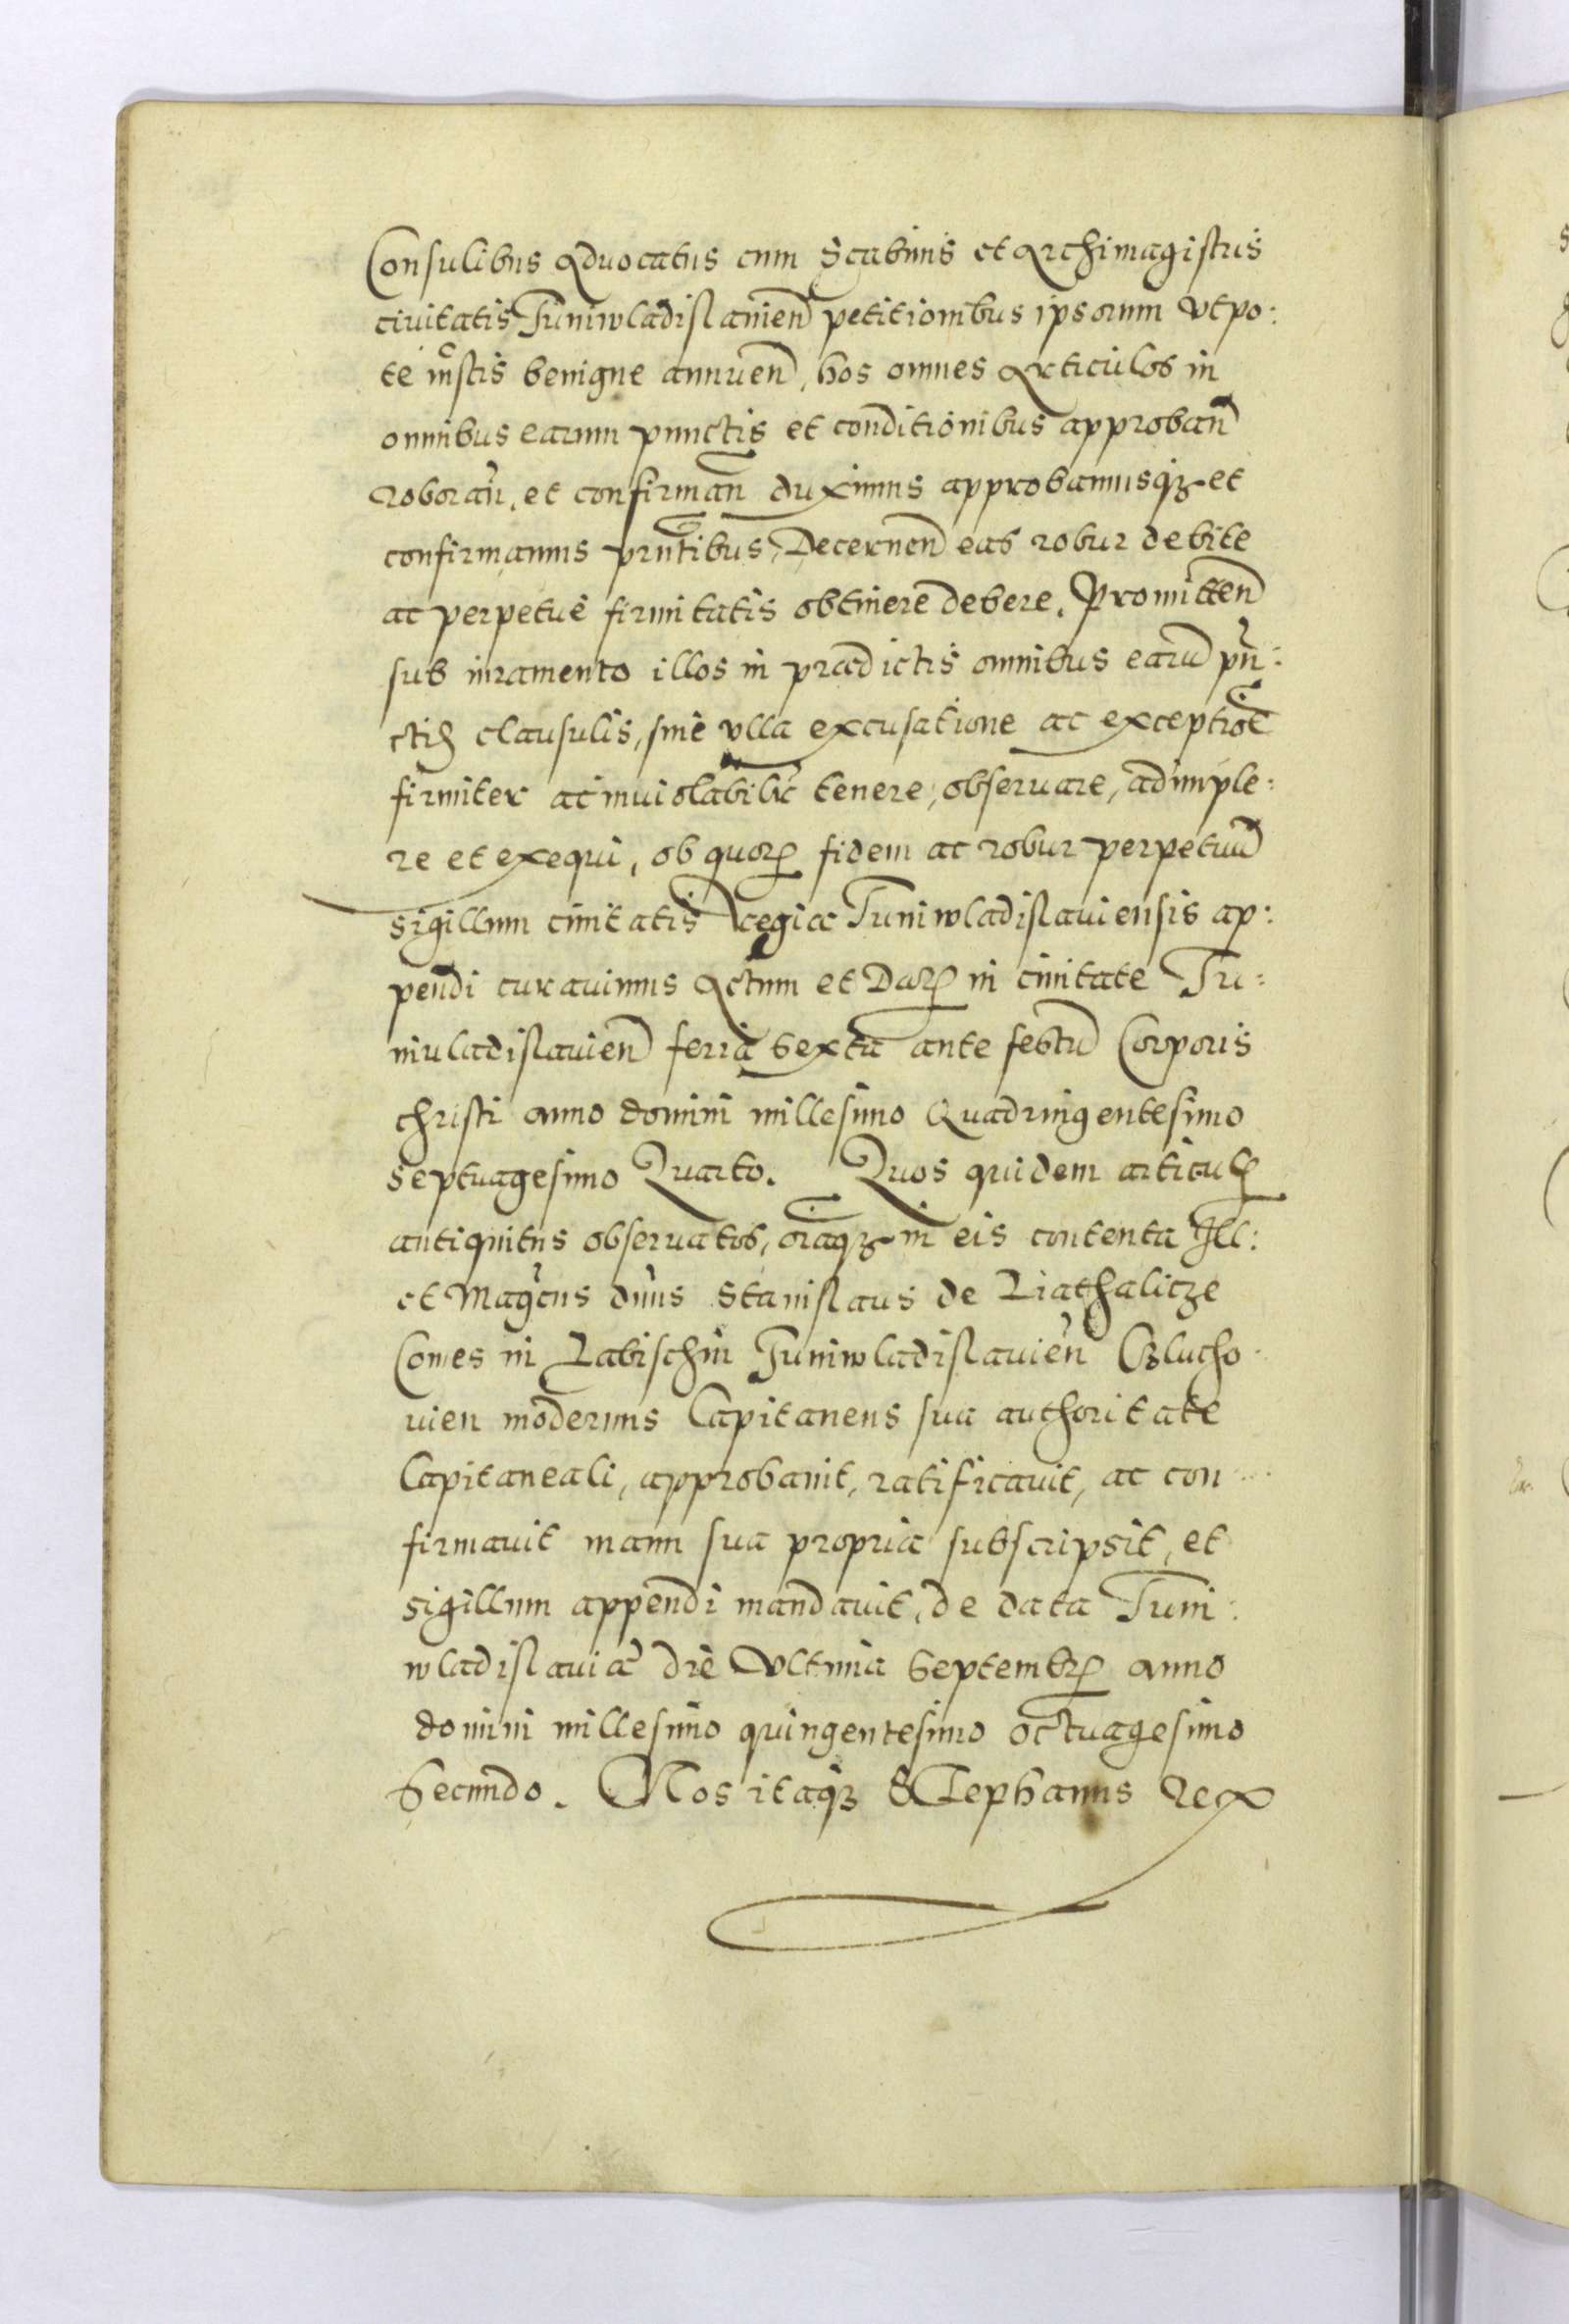 Consulibus Aduocatus cum Scabinis et Archimagistris
ciuitatis Juniwladislauien petitionibus ipsorum vtpo:
te iustis benigne annuen, hos omnes Articulos in
omnibus earum punctis et conditionibus approban
roboran, et confirman duximus approbamusq3 et
confirmamus prntibus, Decernen eas robur debite
ac perpetuè firmitatis obtinere debere. Promitten
sub iuramento illos in prædictis omnibus earū pun:
ctis clausulis, sine vlla excusatione ac exceptioē
firmiter ac inuiolabilr tenere, obseruare, adimple:
re et exequi, ob quorū fidem ac robur perpetuū
sigillum ciuitatis Regiæ Juniwladislauiensis ap:
pendi curauimus Actum et Datū in ciuitate Ju:
niuladislauien feria sexta ante festū Corporis
christi anno domini millesimo Quadringentesimo
septuagesimo Quarto. Quos quidem articulos
antiquitus obseruatos, oīaq3 in eis contenta Ill:
et Magcus dnus Stanislaus de Liathalicze
Comes in Labischin Juniwladislauien Czlucho
uien modernus Capitaneus sua authoritate
Capitaneali, approbauit, ratificauit, ac con
firmauit manu sua propria subscripsit, et
sigillum appendi mandauit, de data Juni:
wladislauiæ die Vltima Septembr anno
domini millesimo quingentesimo octuagesimo
Secundo. Nos itaq3 Stephanus Rex